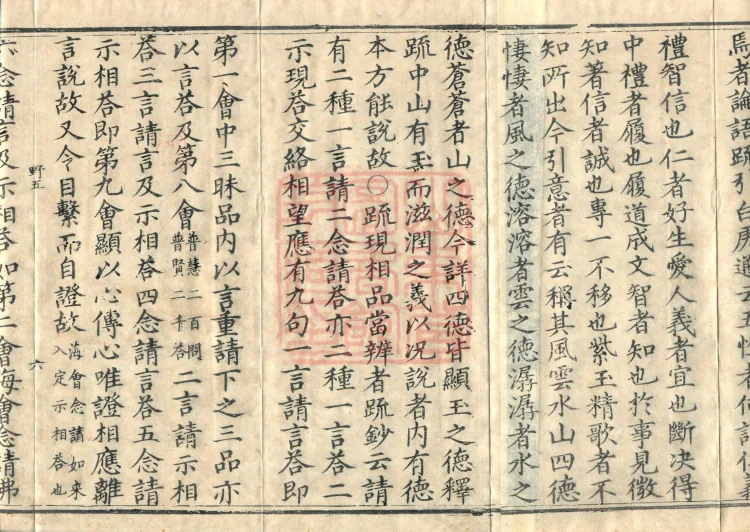 焉者論語疏引白虎通云五性者何謂仁義
禮智信也仁者好生愛人義者宜也斷决得
中禮者履也履道成文智者知也於事見微
知著信者誠也專一不移也紫玉精歌者不
知所出今引意者有云稱其風雲水山四德
悽悽者風之德溶溶者雲之德潺潺者水之
德蒼蒼者山之德今詳四德皆顯玉之德釋
疏中山有玉而滋潤之義以况說者内有德
本方能說故〇疏現相品當辨者疏鈔云請
有二種一言請二念請荅亦二種一言荅二
示現荅交絡相望應有九句一言請言荅即
第一會中三昧品内以言重請下之三品亦
以言荅及第八會普慧二百問普賢二千荅二言請示相
荅三言請言及示相荅四念請言荅五念請
示相荅即第九會顯以心傳心唯證相應離
言說故又令目擊而自證故海會念請如來入定示相荅也
野五
六
六念請言及示相荅如第二會海會念請佛